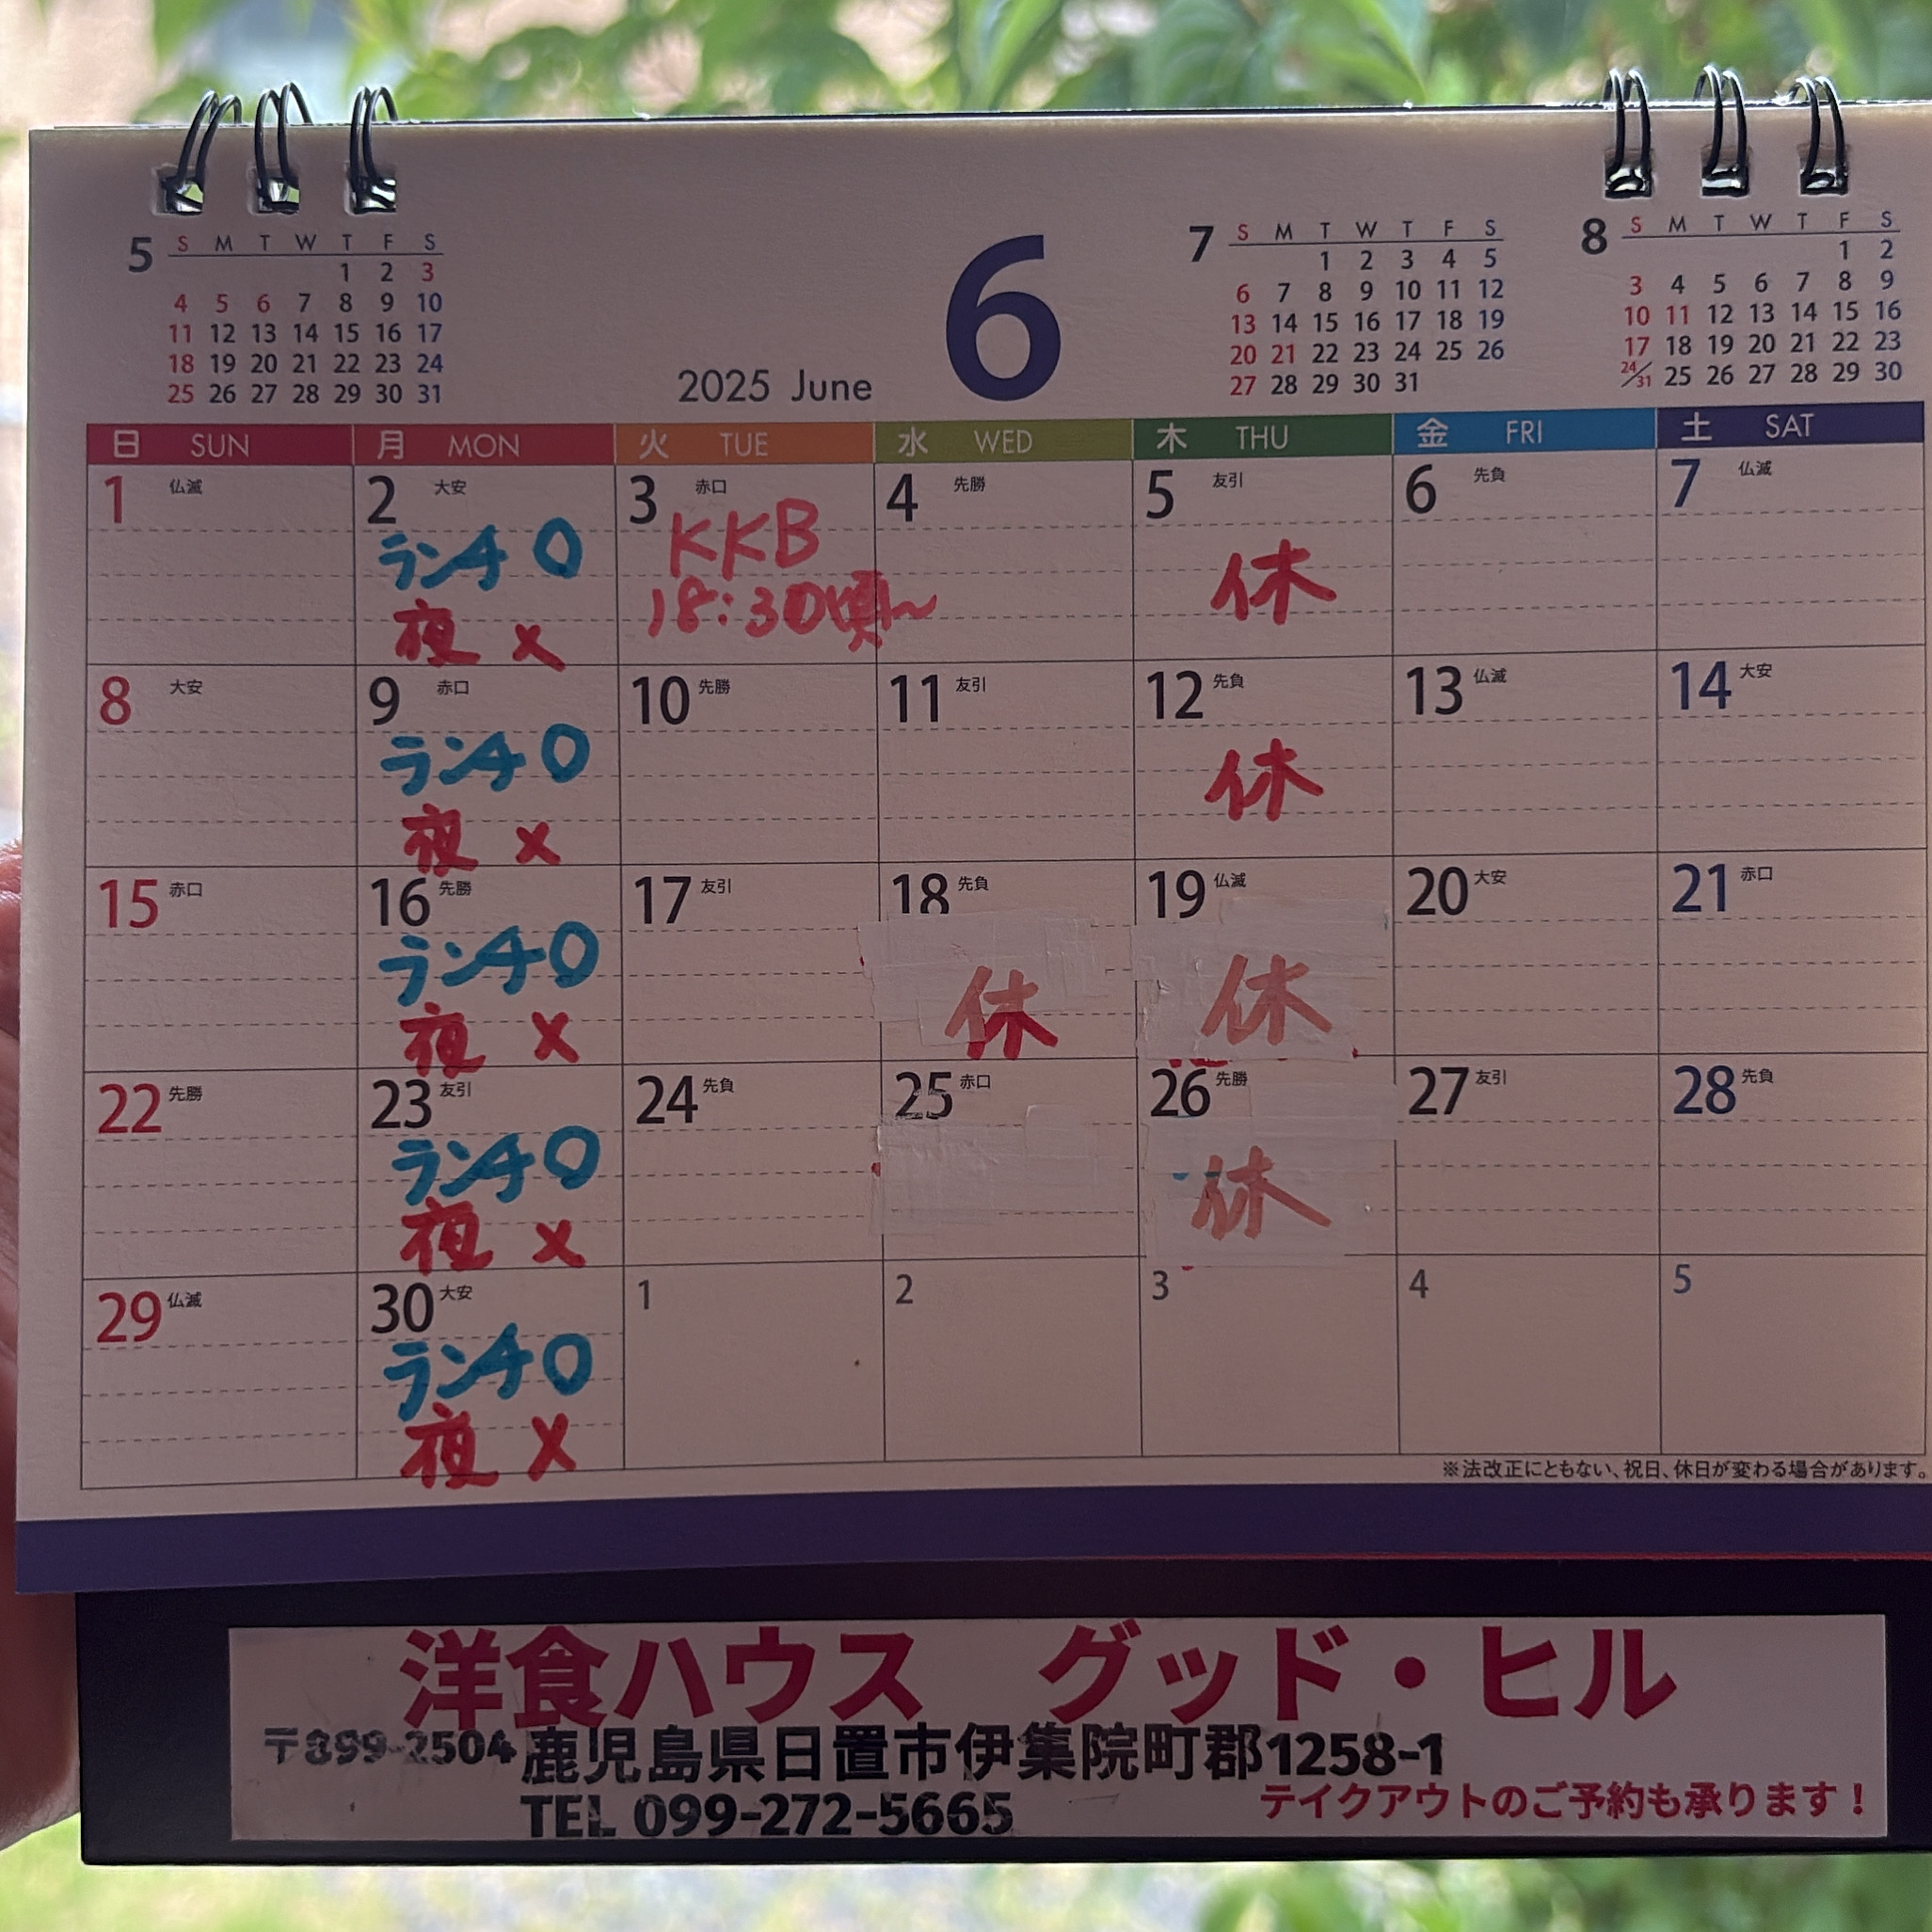 5
S M T W T F S
1 2 3
4 5 6 7 8 9 10
11 12 13 14 15 16 17
18 19 20 21 22 23 24
25 26 27 28 29 30 31
2025 June
6
7
S M T W T F S
1 2 3 4 5
6 7 8 9 10 11 12
13 14 15 16 17 18 19
20 21 22 23 24 25 26
27 28 29 30 31
8
S M T W T F S
1 2
3 4 5 6 7 8 9
10 11 12 13 14 15 16
17 18 19 20 21 22 23
24/31 25 26 27 28 29 30
日 SUN 月 MON 火 TUE 水 WED 木 THU 金 FRI 土 SAT
1 仏滅 2 大安 3 赤口 4 先勝 5 友引 6 先負 7 仏滅
ランチ〇 KKB 休
夜 × 18:30頃〜
8 大安 9 赤口 10 先勝 11 友引 12 先負 13 仏滅 14 大安
ランチ〇 休
夜 ×
15 赤口 16 先勝 17 友引 18 先負 19 仏滅 20 大安 21 赤口
ランチ〇 休 休
夜 ×
22 先勝 23 友引 24 先負 25 赤口 26 先勝 27 友引 28 先負
ランチ〇 休
夜 ×
29 仏滅 30 大安 1 2 3 4 5
ランチ〇
夜 ×
※法改正にともない、祝日、休日が変わる場合があります。
洋食ハウス グッド・ヒル
〒899-2504 鹿児島県日置市伊集院町郡1258-1
TEL 099-272-5665 テイクアウトのご予約も承ります!